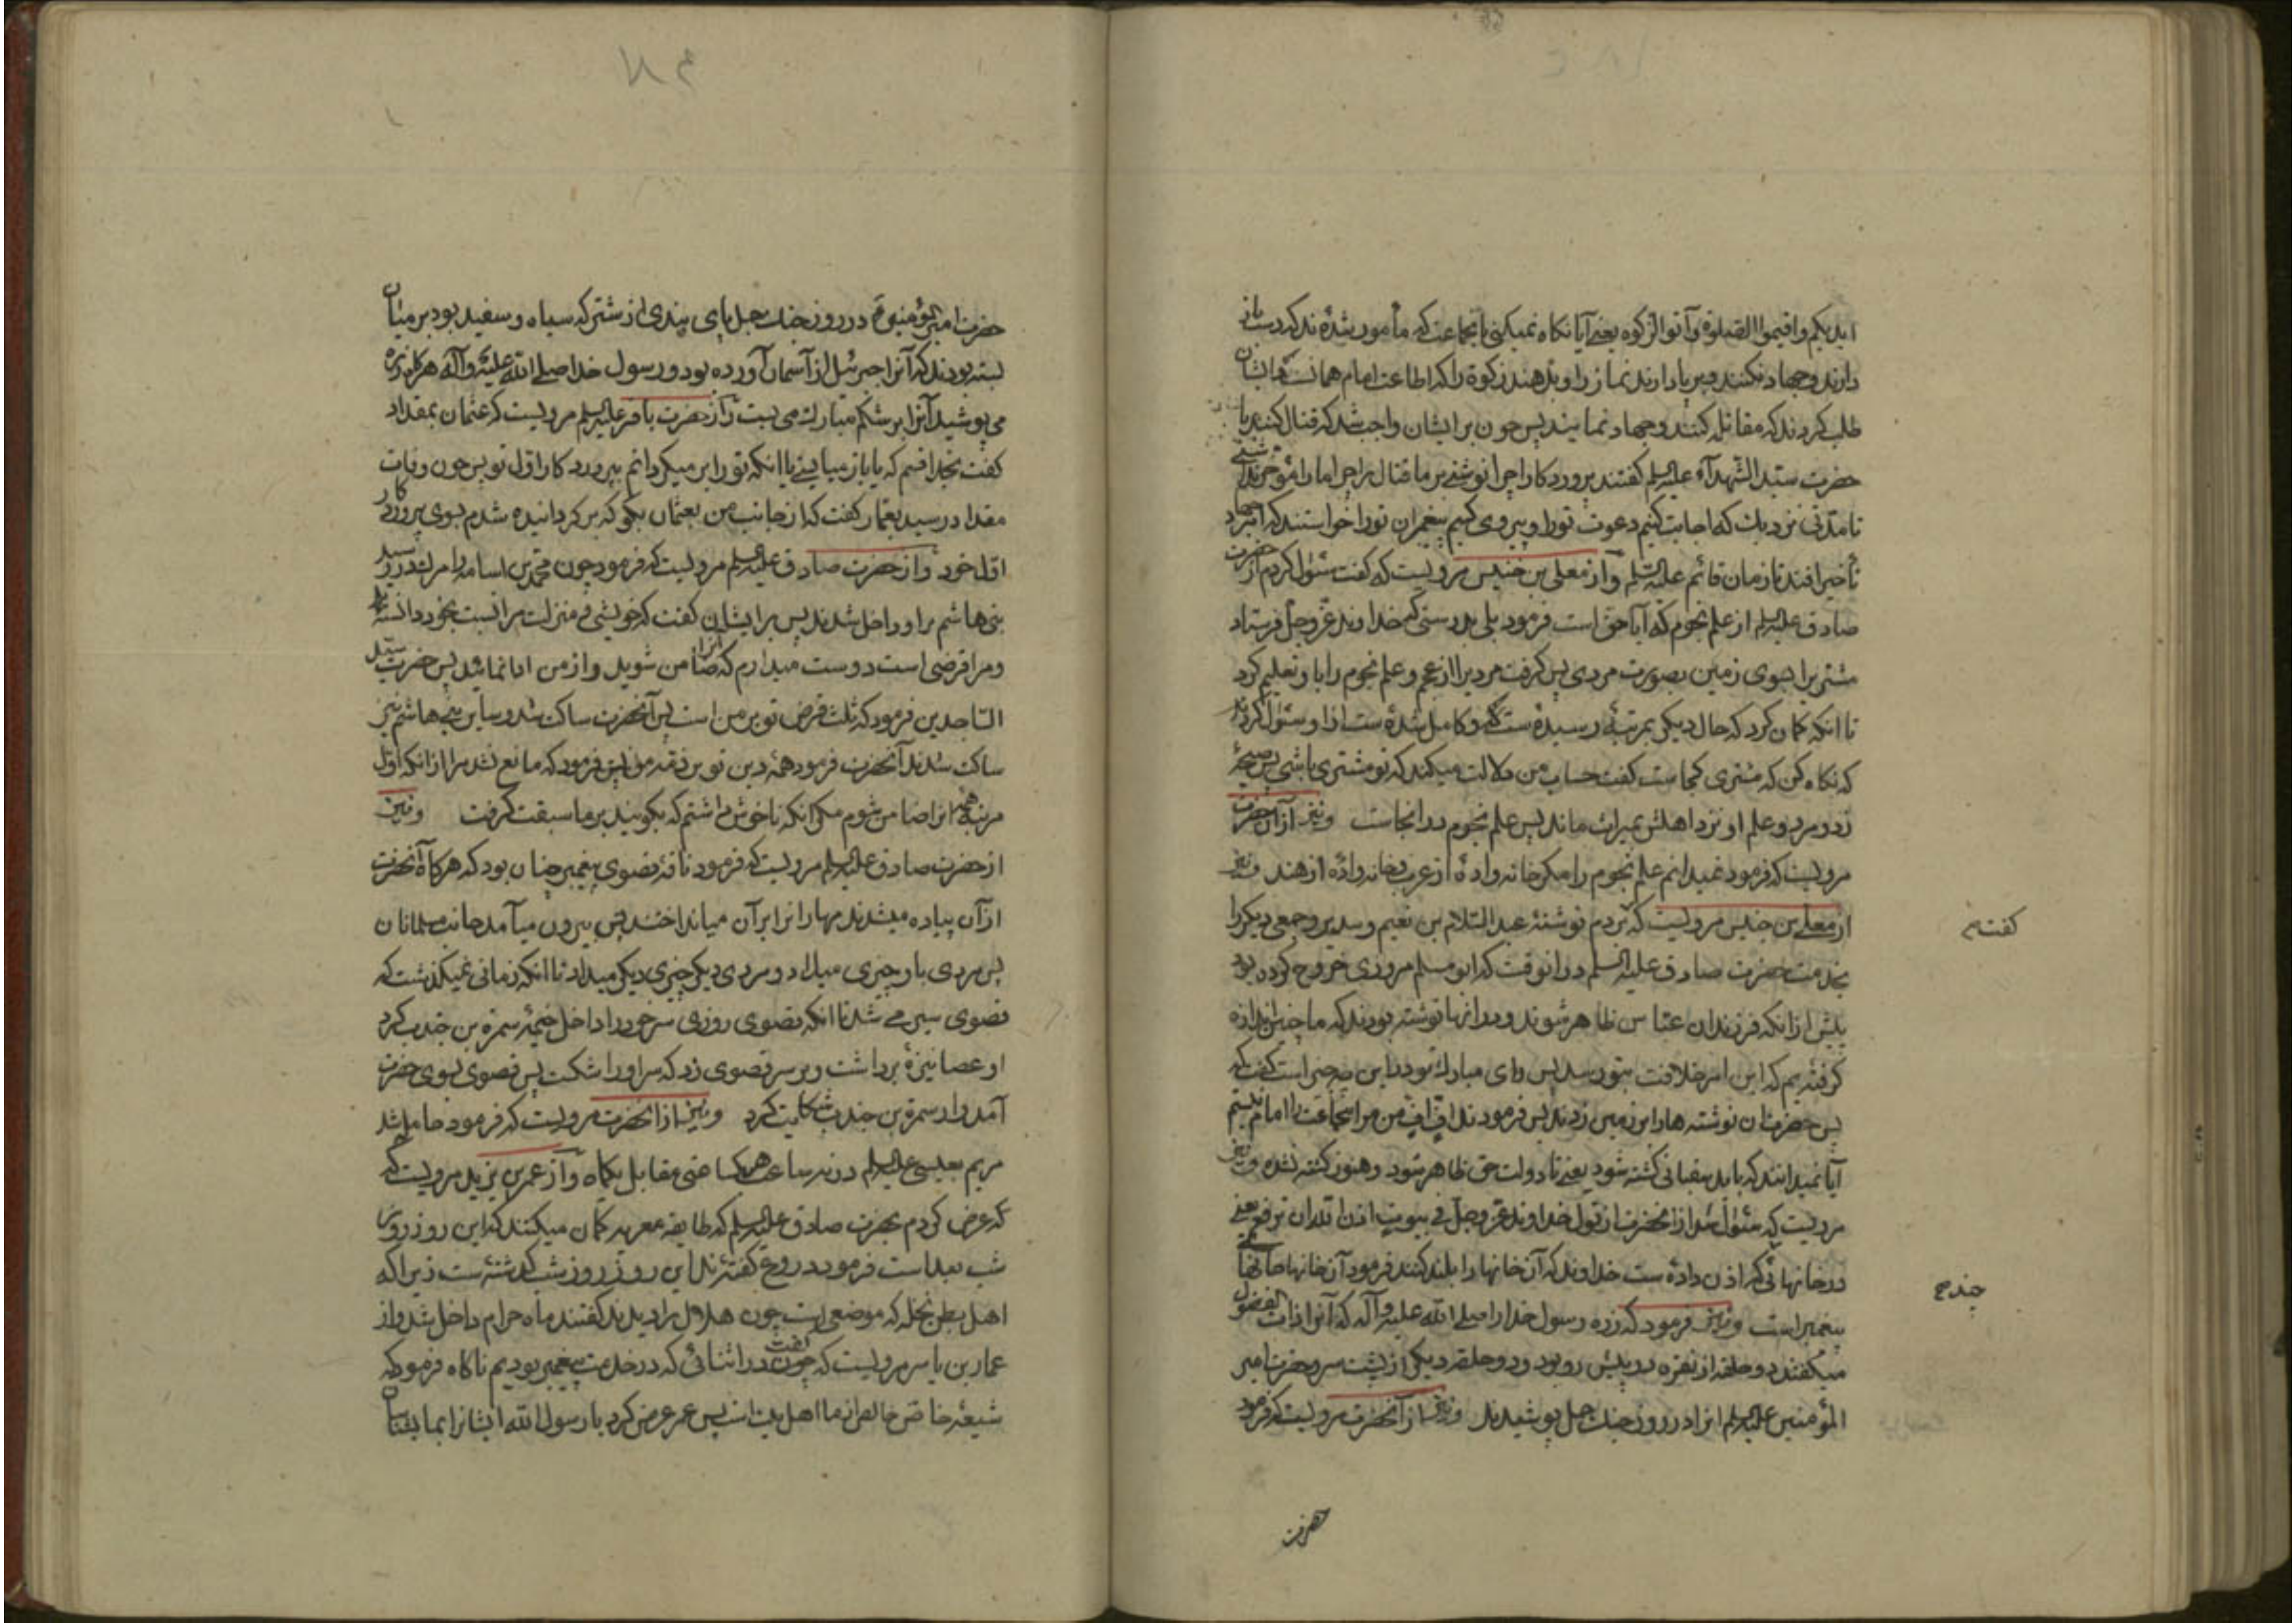 ایدیکم واقیموا الصلوة وآتوا الزکوه یعنی آیا نکاه نمیکنی بانجماعت که مأمور شدۀ‌ند که دست باز
دارند وجهاد نکنند وبرپا دارند نماز را وبدهند زکوة را که اطاعت امام همانست که ایشان
طلب کردند که مقاتله کنند وجهاد نمایند پس چون بر ایشان واجب شد که قتال کنند با
حضرت سیّد الشهدآء علیه السلم کفتند پروردکارا چرا نوشتی بر ما قتال را چرا ما را مؤخر نداشتی
تا مدّتی نزدیك که اجابت کنیم دعوت تو را وپیروی کنیم پیغمبران تو را خواستند که
تأخیر افتد تا زمان قائم علیه السّلم وآز معلی بن خنیس مرویست که کفت سئوال کردم از حضرت
صادق علیه السلم از علم نجوم که آیا حق است فرمود بلی بدرستی که خداوند عزّوجلّ فرستاد
مشتری را بسوی زمین بصورت مردی پس کرفت مردیرا از عجم وعلم نجوم را باو تعلیم کرد
تا انکه کمان کرد که حال دیکر بمرتبۀ رسیدۀ‌ست که وکامل شدۀ‌ست اذا و سئوال کردند
که نکاه کن که مشتری کجاست کفت حساب من دلالت میکند که تو مشتری باشی پس صیحۀ
زد ومرد وعلم او نزد اهلش بمیراث ماند پس علم نجوم در انجاست ونیز از آن حضرت
مرویست که فرمود نمیدانم علم نجوم را مکر خانه وادۀ از عرب وخانه وادۀ از هند ونیز
از معلی بن خنیس مرویست که بردم نوشتۀ عبد السّلام بن نعیم وسدیر وجمعی دیکر را
کفت نم
بخدمت حضرت صادق علیه السلم در انوقت که ابو مسلم مروزی خروج کرده بود
پیش از انکه فرزندان عبّاس ظاهر شوند ودر انها نوشته بودند که ما چنین اراده
کرفته‌یم که این امر خلافت بتو رسد پس رای مبارك تو در این چه چیز است کفت که
پس حضرت ان نوشته ها را بر زمین زدند پس فرمودند افّ افّ من مر انجماعت را امام نیستم
آیا نمیدانند که باید سفیانی کشته شود یعنی تا دولت حق ظاهر شود وهنوز کشته نشده ونیز
مرویست که سئوال شد از انحضرت از قول خداوند عزّوجلّ فی بیوت اذن الله ان ترفع یعنی
در خانهائی که اذن دادۀ‌ست خداوند که آن خانها را بلند کنند فرمود آن خانها خانهای
جندح
پیغمبر است ونیز فرمود که زره رسول خدا را صلی الله علیه وآله که آنرا ذات الفضول
میکفتند دو حلقه از نقره در پیش رو بود ودو حلقه دیکر از پشت سر وحضرت امیر
المؤمنین علیه السلم انرا در روز جنك جمل پوشیدند ونیز از آنحضرت مرویست که فرمود
حضرت
حضرت امیر المؤمنین در روز جنك جمل پای بندی از شتر که سیاه وسفید بود بر میان
بسته بودند که آنرا جبرئیل از آسمان آورده بود ورسول خدا صلی الله علیه وآله هرکاه زره
می پوشید آنرا بر شکم مبارك می بست وآز حضرت باقر علیه السلم مرویست که عثمان بمقداد
کفت بخدا قسم که یا باز میایستی یا انکه تو را بر میکردانم بپروردکار اوّل تو پس چون وفات
مقداد رسید بعمّار کفت که از جانب من بعثمان بکو که بر کردانیده شدم بسوی پروردکار
اوّل خود وآز حضرت صادق علیه السلم مرویست که فرمود چون محمّد بن اسامه را مرك در رسید
بنی هاشم بر او داخل شدند پس مر ایشان کفت که خویشی ومنزلت مرا نسبت بخود دانسته
ومرا قرضی است دوست میدارم که ضامن شوید انرا واز من ادا نمائید پس حضرت سیّد
السّاجدین فرمود که ثلث قرض تو بر من است پس آنحضرت ساکن شد وسایر بنی هاشم نیز
ساکت شدند آنحضرت فرمود همۀ دین تو بر ذمّۀ من پس فرمود که مانع نشد مرا از انکه اوّل
مرتبه همۀ انرا ضامن شوم مکر انکه ناخوش داشتم که بکویند بر ما سبقت کرفت ونیز
از حضرت صادق علیه السلم مرویست که فرمود ناقۀ قصوی پیغمبر چنان بود که هرکاه آنحضرت
از آن پیاده میشدند مهار انرا بر آن میانداختند پس بیرون میآمد جانب مسلمانان
پس مردی باو چیزی میداد ومردی دیکر چیزی دیکر میداد تا انکه زمانی نمیکذشت که
قصوی سیر می شد تا انکه قصوی روزی سر خود را داخل خیمۀ سمرة بن جندب کرد
او عصا نیزۀ برداشت وبر سر قصوی زد که سر او را شکست پس قصوی بسوی حضرت
آمد واز سمرة بن جندب شکایت کرد ونیز از انحضرت مرویست که فرمود حامل شد
مریم بعیسی علیه السلم در نه ساعت هر ساعتی مقابل یکماه وآز عمر بن یزید مرویست که
که عرض کردم بحضرت صادق علیه السلم که طایفه مغیریه کمان میکنند که این روز از برای
شب بعد است فرمود دروغ کفتۀ‌ند این روز روز شب کذشتۀ‌ست زیرا که
اهل بطن نخله که موضعی است چون هلال را دیدند کفتند ماه حرام داخل شد واز
عمّار بن یاسر مرویست که کفت چون در اثنائی که در خدمت پیغمبر بودیم ناکاه فرمود که
شیعۀ خاصّ خالص از ما اهل بیت است پس عمر عرض کرد یا رسول الله ایشانرا بما بشناسان